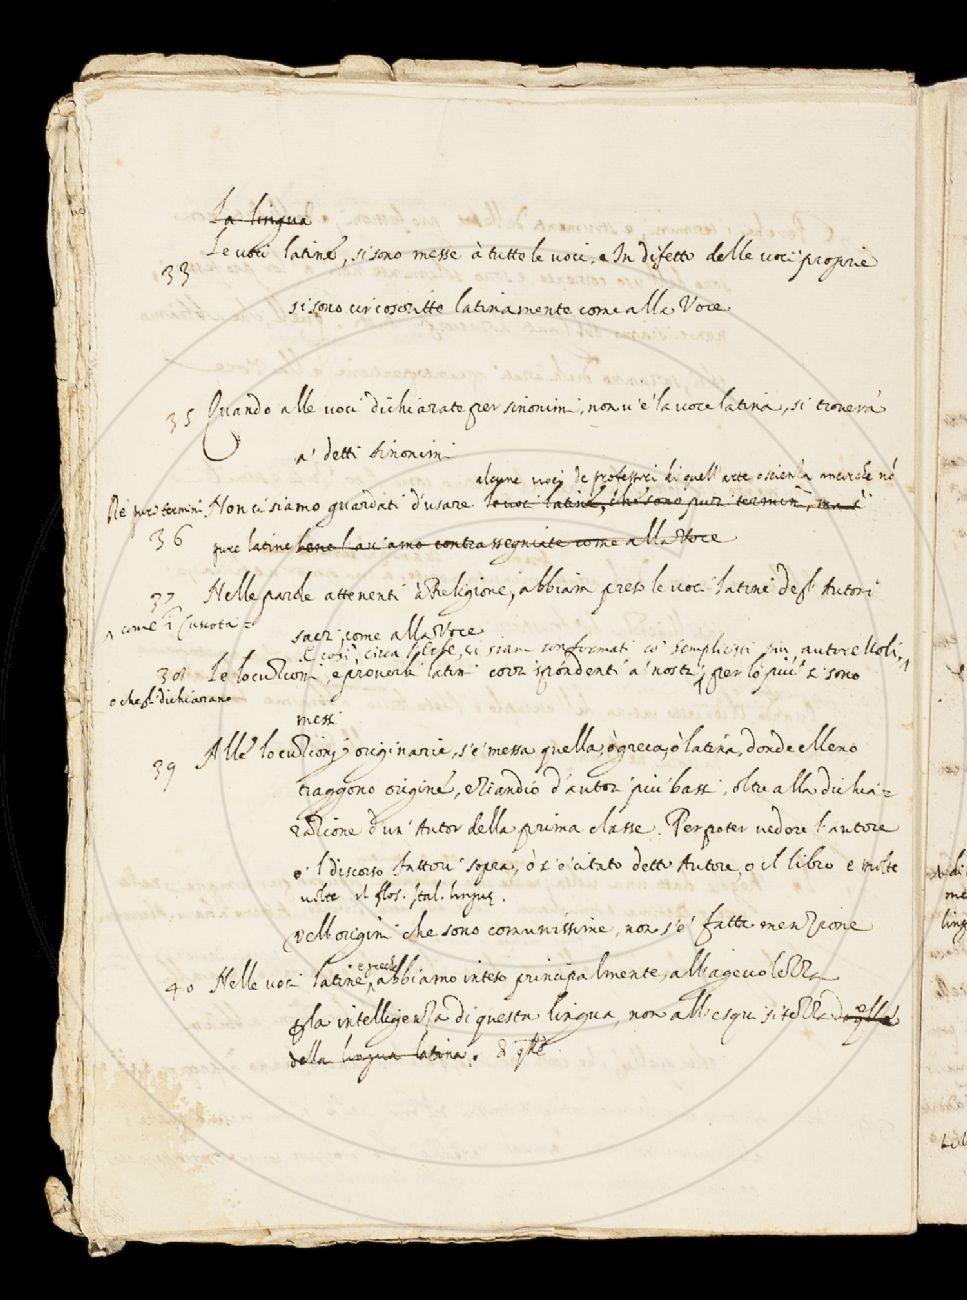 La lingua
Le voci latine, si sono messe à tutte le voci, e In difetto delle voci proprie
33
si sono circoscritte latinamente come alla Voce
35 Quando alle voci dichiarate per sinonimi, non v'è la voce latina, si troverrà
a' detti sinonimi
alcune voci de professori di quell'arte o scienza ancorche nõ
Ne' puri termini Non ci siamo guardati d'usare le voci latine, che sono puri termini, ma s'
36 pure latine bene l'aviamo contrassegniate come alla Voce
37 Nelle parole attenenti à Religione, abbiam preso le voci latine degl'Autori
sacri come alla Voce
E così, circa ci siam conformati co' semplicisti più autorevoli
38 Le locuzioni, e proverbi latini corrispondenti a' nostri, per lo più si sono
o che gl'dichiarano
messi
39 Alle locuzioni originarie, s'è messa quella, ò greca, ò latina, donde elleno
traggono origine, eziandio d'autor' più bassi, oltre alla dichia=
razione d'un'Autor della prima classe. Per poter vedere l'autore
e 'l discorso fattovi sopra, ò s'è citato detto Autore, o il libro e molte
volte il flos. ital. linguę.
Dell'origini che sono comunissime, non s'è fatta menzione
e greche
40 Nelle voci latine, abbiamo inteso principalmente, all'agevolezza
la intelligenza di questa lingua, non all'esquisitezza
della lingua latina.